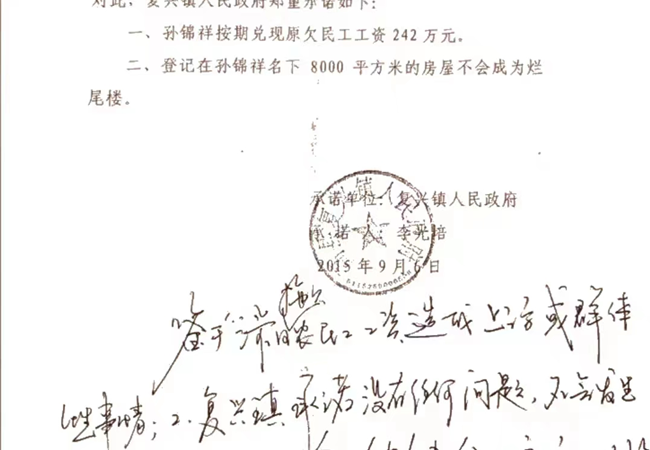 对此，复兴镇人民政府郑重承诺如下：
一、孙锦祥按期兑现原欠民工工资242万元。
二、登记在孙锦祥名下 8000 平方米的房屋不会成为烂
尾楼。
承诺单位：复兴镇人民政府
承 诺 人：李光培
2015年9月6日
鉴于 农民工工资造成上访或群体
性事情；2.复兴镇承诺没有任何问题，不会发生